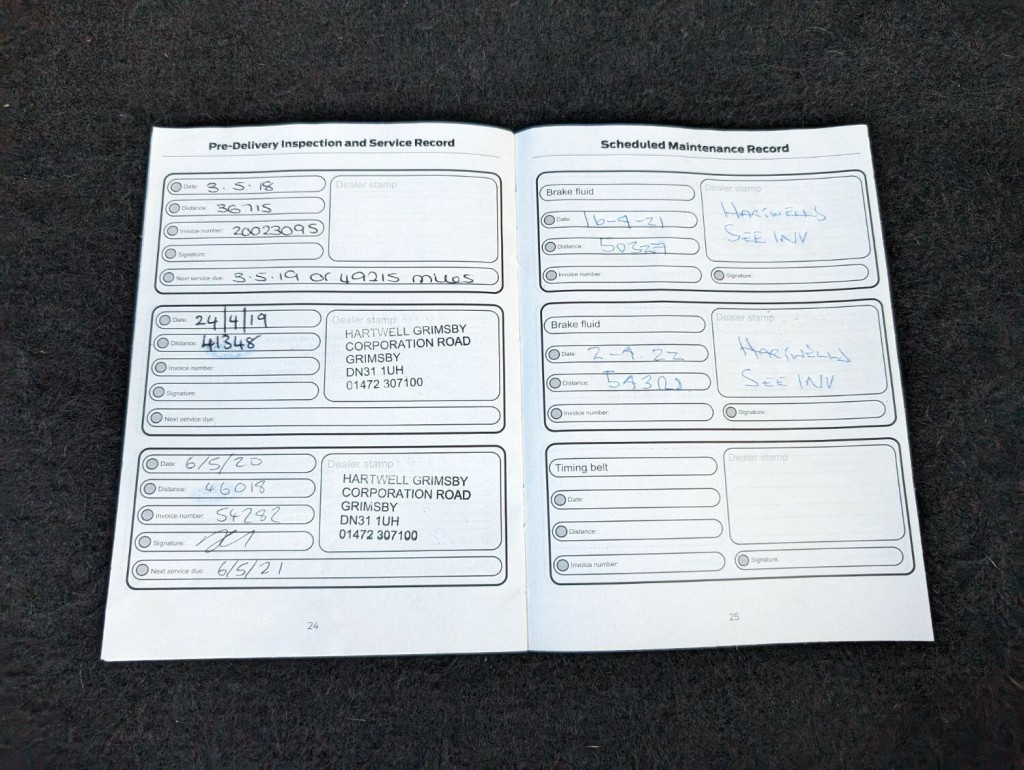 Pre-Delivery Inspection and Service Record
Date: 3.5.18
Dealer stamp
Distance: 36715
Invoice number: 20023095
Signature:
Next service due: 3.5.19 or 49215 miles
Date: 24/4/19
Dealer stamp
Distance: 41348
HARTWELL GRIMSBY
CORPORATION ROAD
GRIMSBY
DN31 1UH
01472 307100
Invoice number:
Signature:
Next service due:
Date: 6/5/20
Dealer stamp
Distance: 46018
HARTWELL GRIMSBY
CORPORATION ROAD
GRIMSBY
DN31 1UH
01472 307100
Invoice number: 54282
Signature:
Next service due: 6/5/21
24
Scheduled Maintenance Record
Brake fluid
Dealer stamp
HARTWELLS
SEE INV
Date: 16-4-21
Distance: 50327
Invoice number:
Signature:
Brake fluid
Dealer stamp
HARTWELLS
SEE INV
Date: 2-4-22
Distance:
Invoice number:
Signature:
Timing belt
Dealer stamp
Date:
Distance:
Invoice number:
Signature:
25